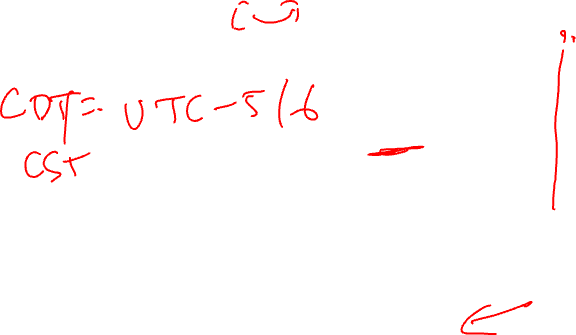 CDT= UTC-5/-6
CST